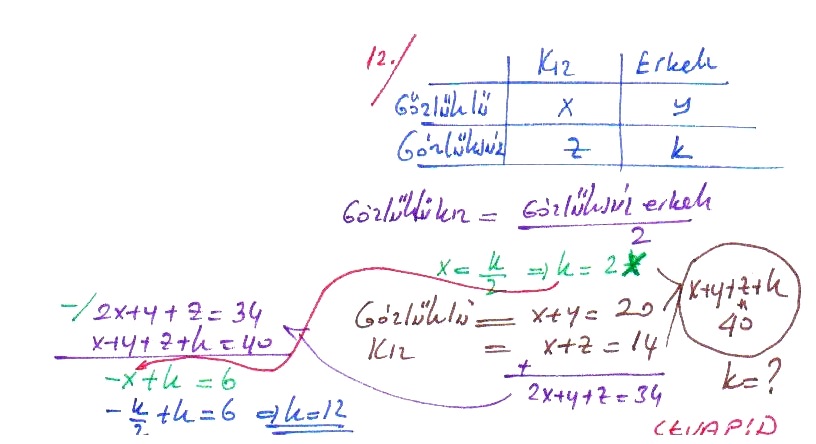 12./
Kız Erkek
Gözlüklü x y
Gözlüksüz z k
Gözlüklü kız = Gözlüksüz erkek / 2
x = k/2 ⇒ k = 2x
Gözlüklü = x+y = 20
Kız = x+z = 14
+
2x+y+z = 34
x+y+z+k
"
40
k = ?
-/ 2x+y+z = 34
x+y+z+k = 40
-x+k = 6
-k/2 + k = 6 ⇒ k = 12
CEVAP: D